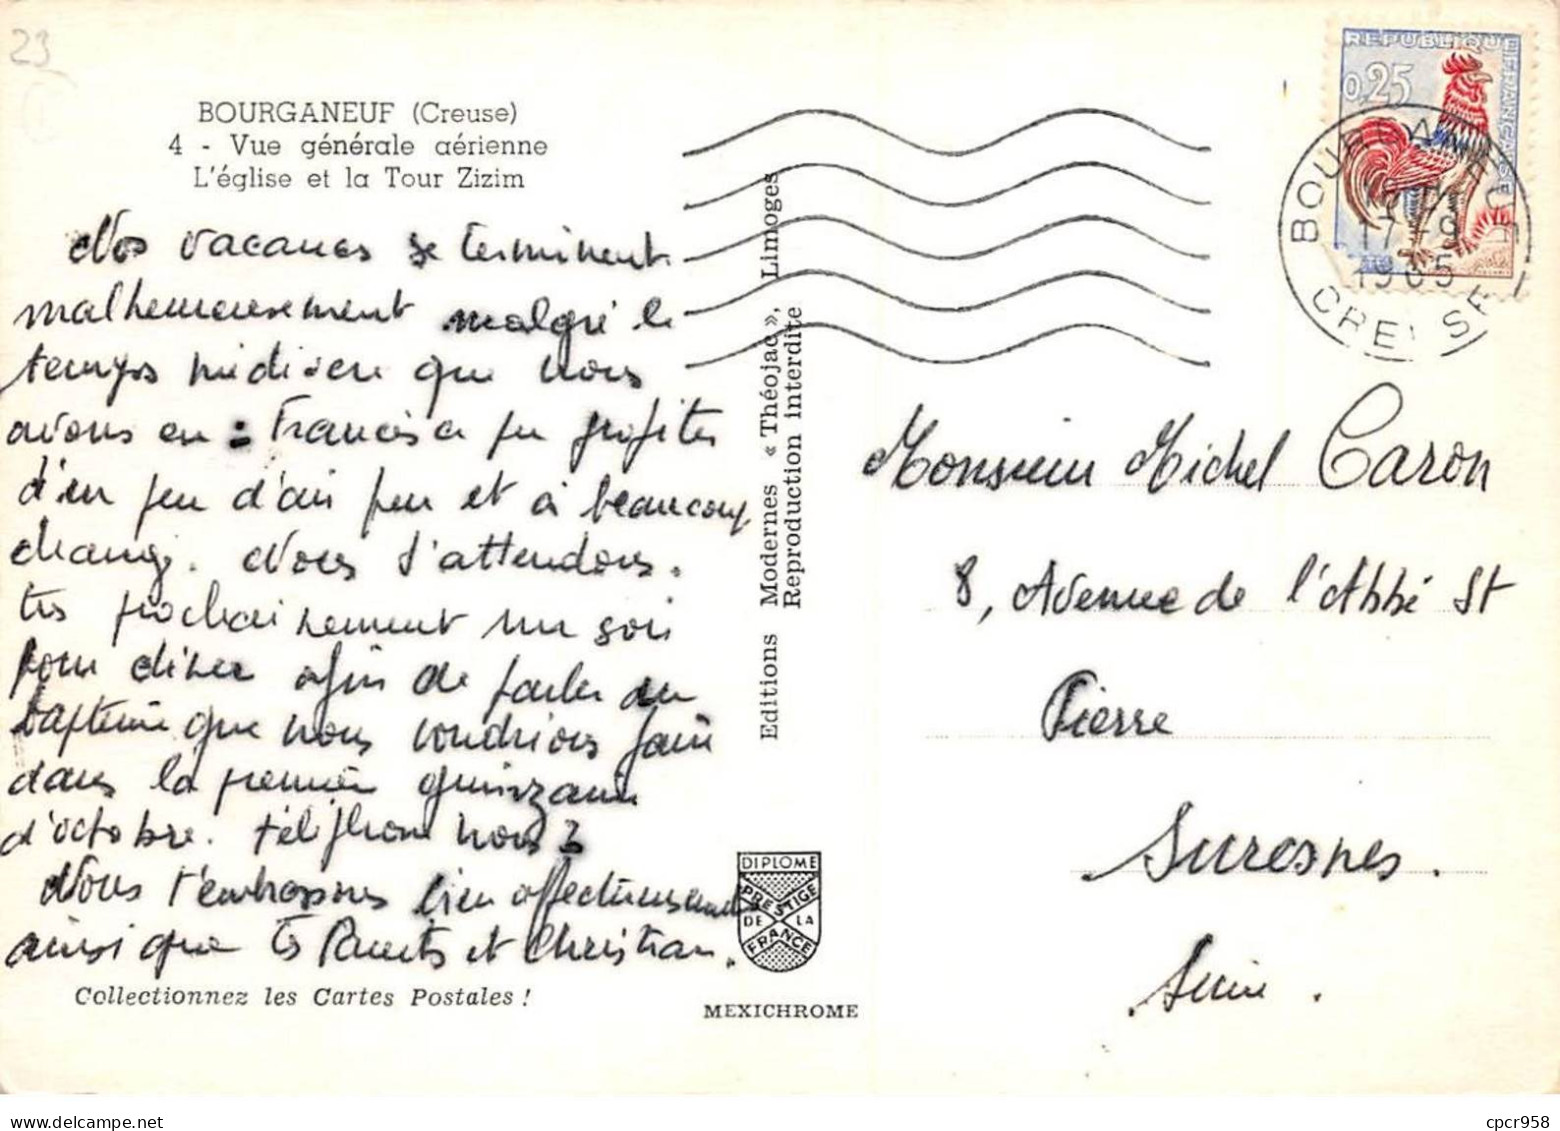 23
BOURGANEUF (Creuse)
4 - Vue générale aérienne
L'église et la Tour Zizim
Nos vacances se terminent
malheureusement malgré le
temps que nous
avons eu : Francis a pu profiter
d'un peu d'air pur et a beaucoup
changé. Nous t'attendons
très prochainement un soir
pour dîner afin de parler du
baptême que nous voudrions faire
dans la première quinzaine
d'octobre. téléphone nous
Nous t'embrassons bien affectueusement
ainsi que tes Parents et Christian.
Collectionnez les Cartes Postales !
Editions Modernes « Théojac », Limoges
Reproduction interdite
DIPLOME
PRESTIGE
DE LA
FRANCE
MEXICHROME
REPUBLIQUE FRANÇAISE
0,25
BOURGANEUF
17 - 9
1965
CREUSE
Monsieur Michel Caron
8, Avenue de l'Abbé St
Pierre
Suresnes.
Seine.
cpcr958